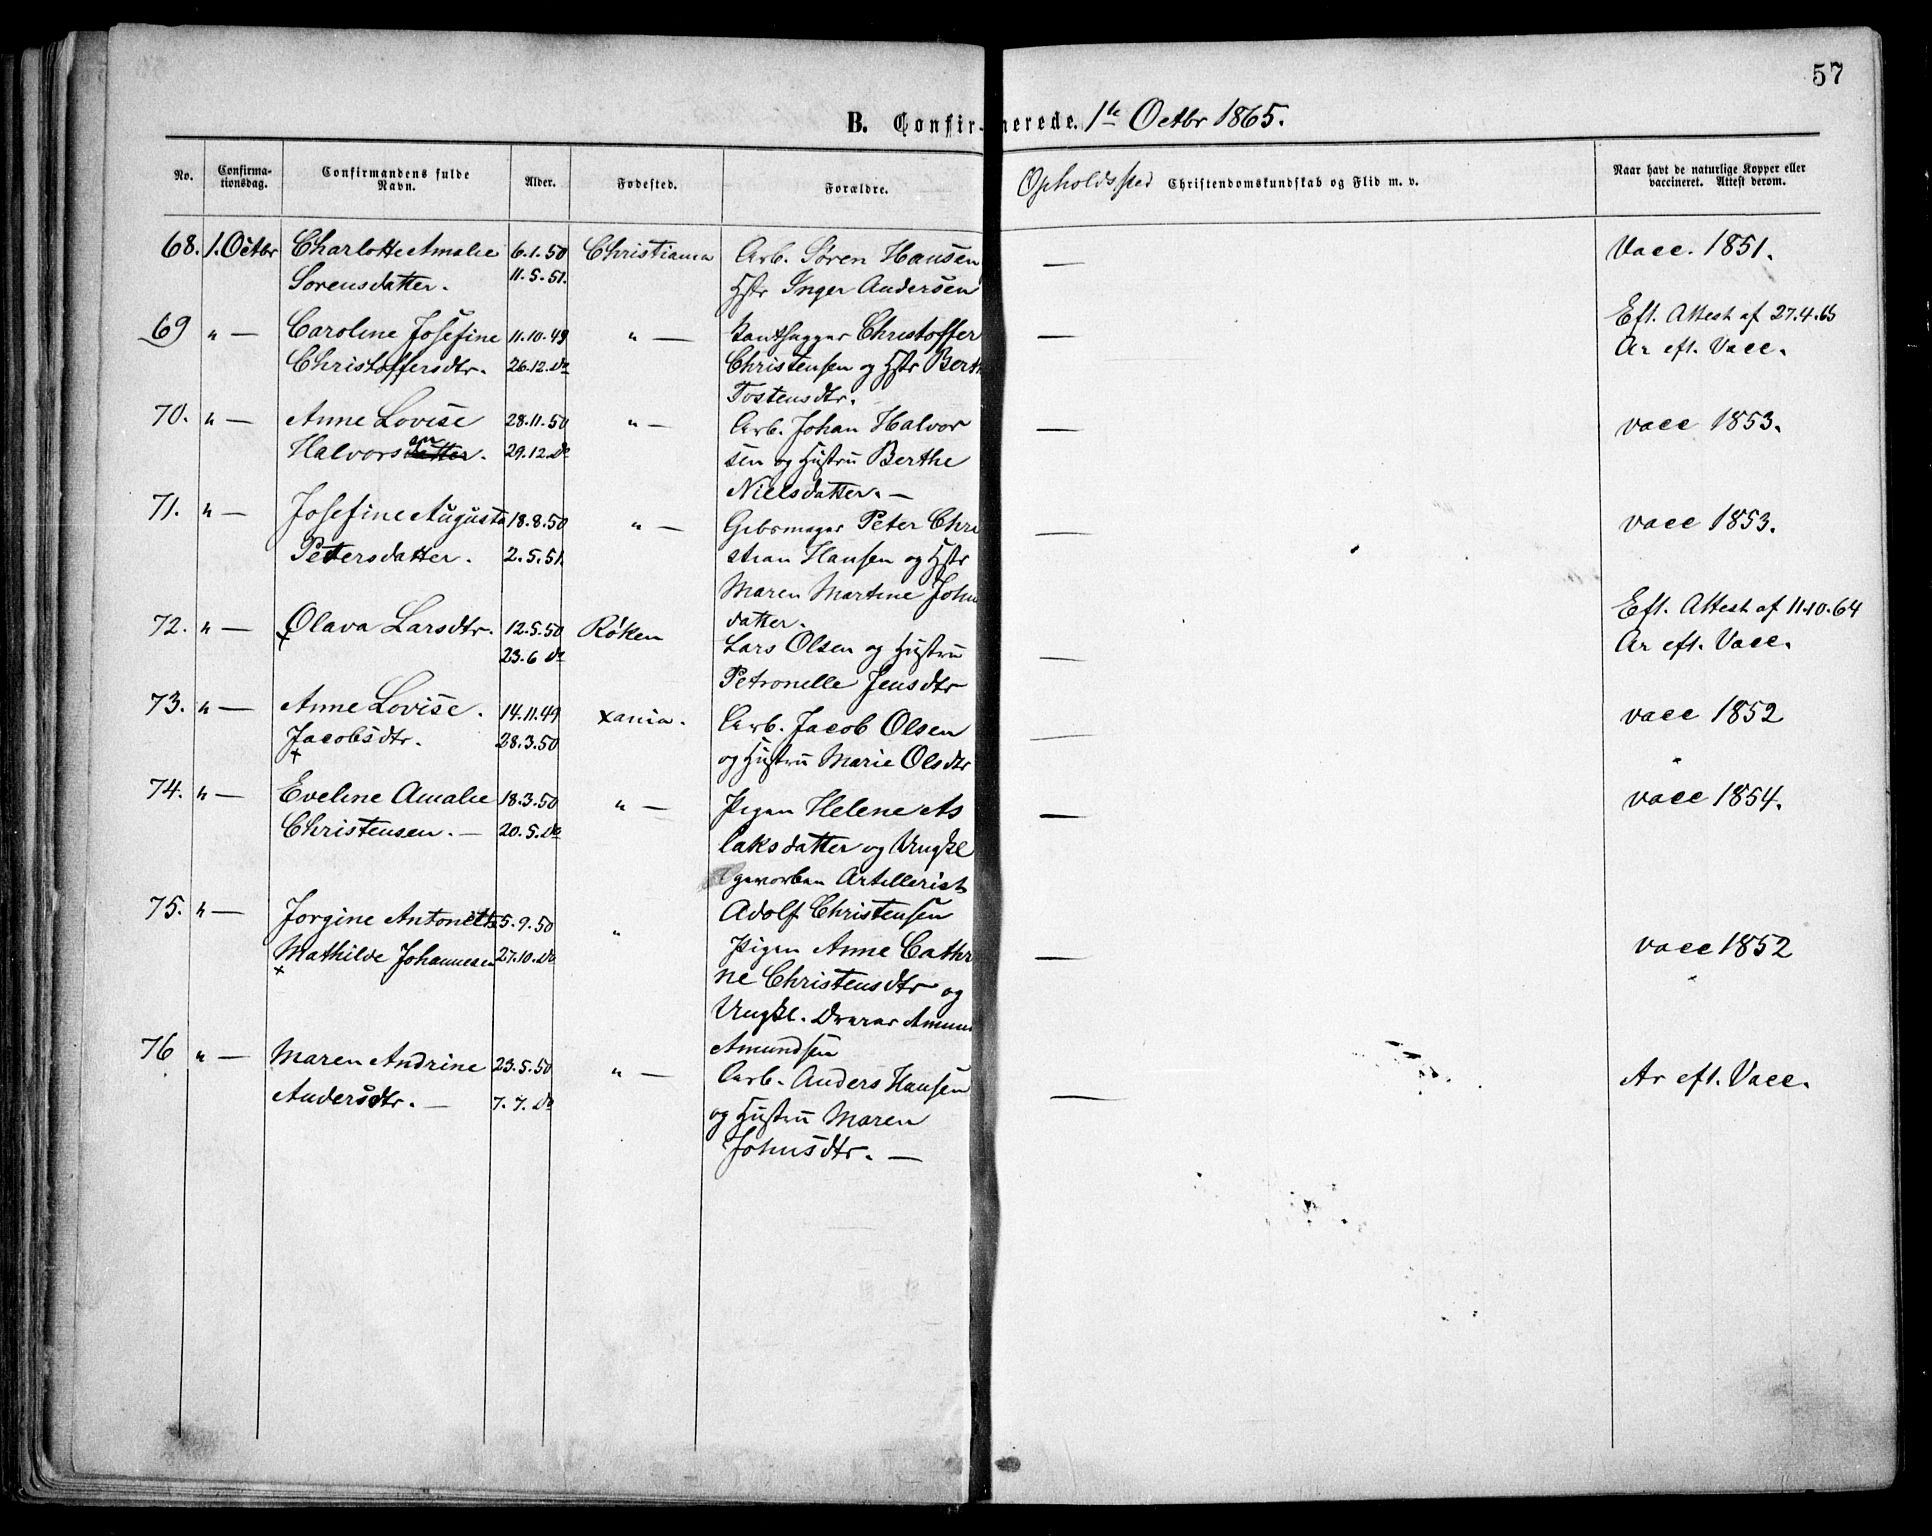 57
B. Confirmerede. 1te Octbr 1865.
No. Confirmationsdag. Confirmandens fulde Navn. Alder. Fødested. Forældre. Opholdssted Christendomskundskab og Flid m. v. Naar havt de naturlige Kopper eller vaccineret. Attest derom.
68. 1. Octbr Charlotte Amalie 6.1.50 Christiania Arb. Søren Hansen — Vacc. 1851.
Sørensdatter. 11.5.51. Hstr Inger Andersen
69 " — Caroline Josefine 11.10.49 " — Christoffer — Eft. Attest af 27.4.65
Christoffersdtr. 26.12. Do Christensen og Hstr Berth Ar eft. Vacc.
Tostensdtr.
70. " — Anne Lovise 28.11.50 " — Arb. Johan Halvor — vacc 1853.
Halvorsdatter sen. 29.12. Do sen og Hustru Berthe
Nielsdatter. —
71. " — Josefine Augusta 18.8.50 " — Gibsmager Peter Chri — vacc 1853.
Petersdatter. 2.5.51. stian Hansen og Hstr
Maren Martine John
datter.
72. " — Olava Larsdtr. 12.5.50 Røken Lars Olsen og Hustru — Eft. Attest af 11.10.64
x 23.6 Do Petronelle Jensdtr Ar eft. Vacc.
73. " — Anne Lovise. 14.11.49 xania. Arb. Jacob Olsen — vacc 1852
Jacobsdtr. 28.3.50 og Hustru Marie Olsdtr
x
74. " — Eveline Amalie 18.3.50 " — Pigen Helene As — vacc 1854.
Christensen. — 20.5. Do laksdatter og Ungkl
gevorben Artillerist
Adolf Christensen
75. " — Jorgine Antonette 5.9.50 " Pigen Anne Cathri — vacc 1852
Mathilde Johannesen 27.10. Do ne Christensdtr og
x Ungkl. Amun
Amundsen
76 " — Maren Andrine 23.5.50 " — Arb. Anders Hansen — Ar eft. Vacc.
Andersdtr. — 7.7. Do og Hustru Maren
Johnsdtr. —